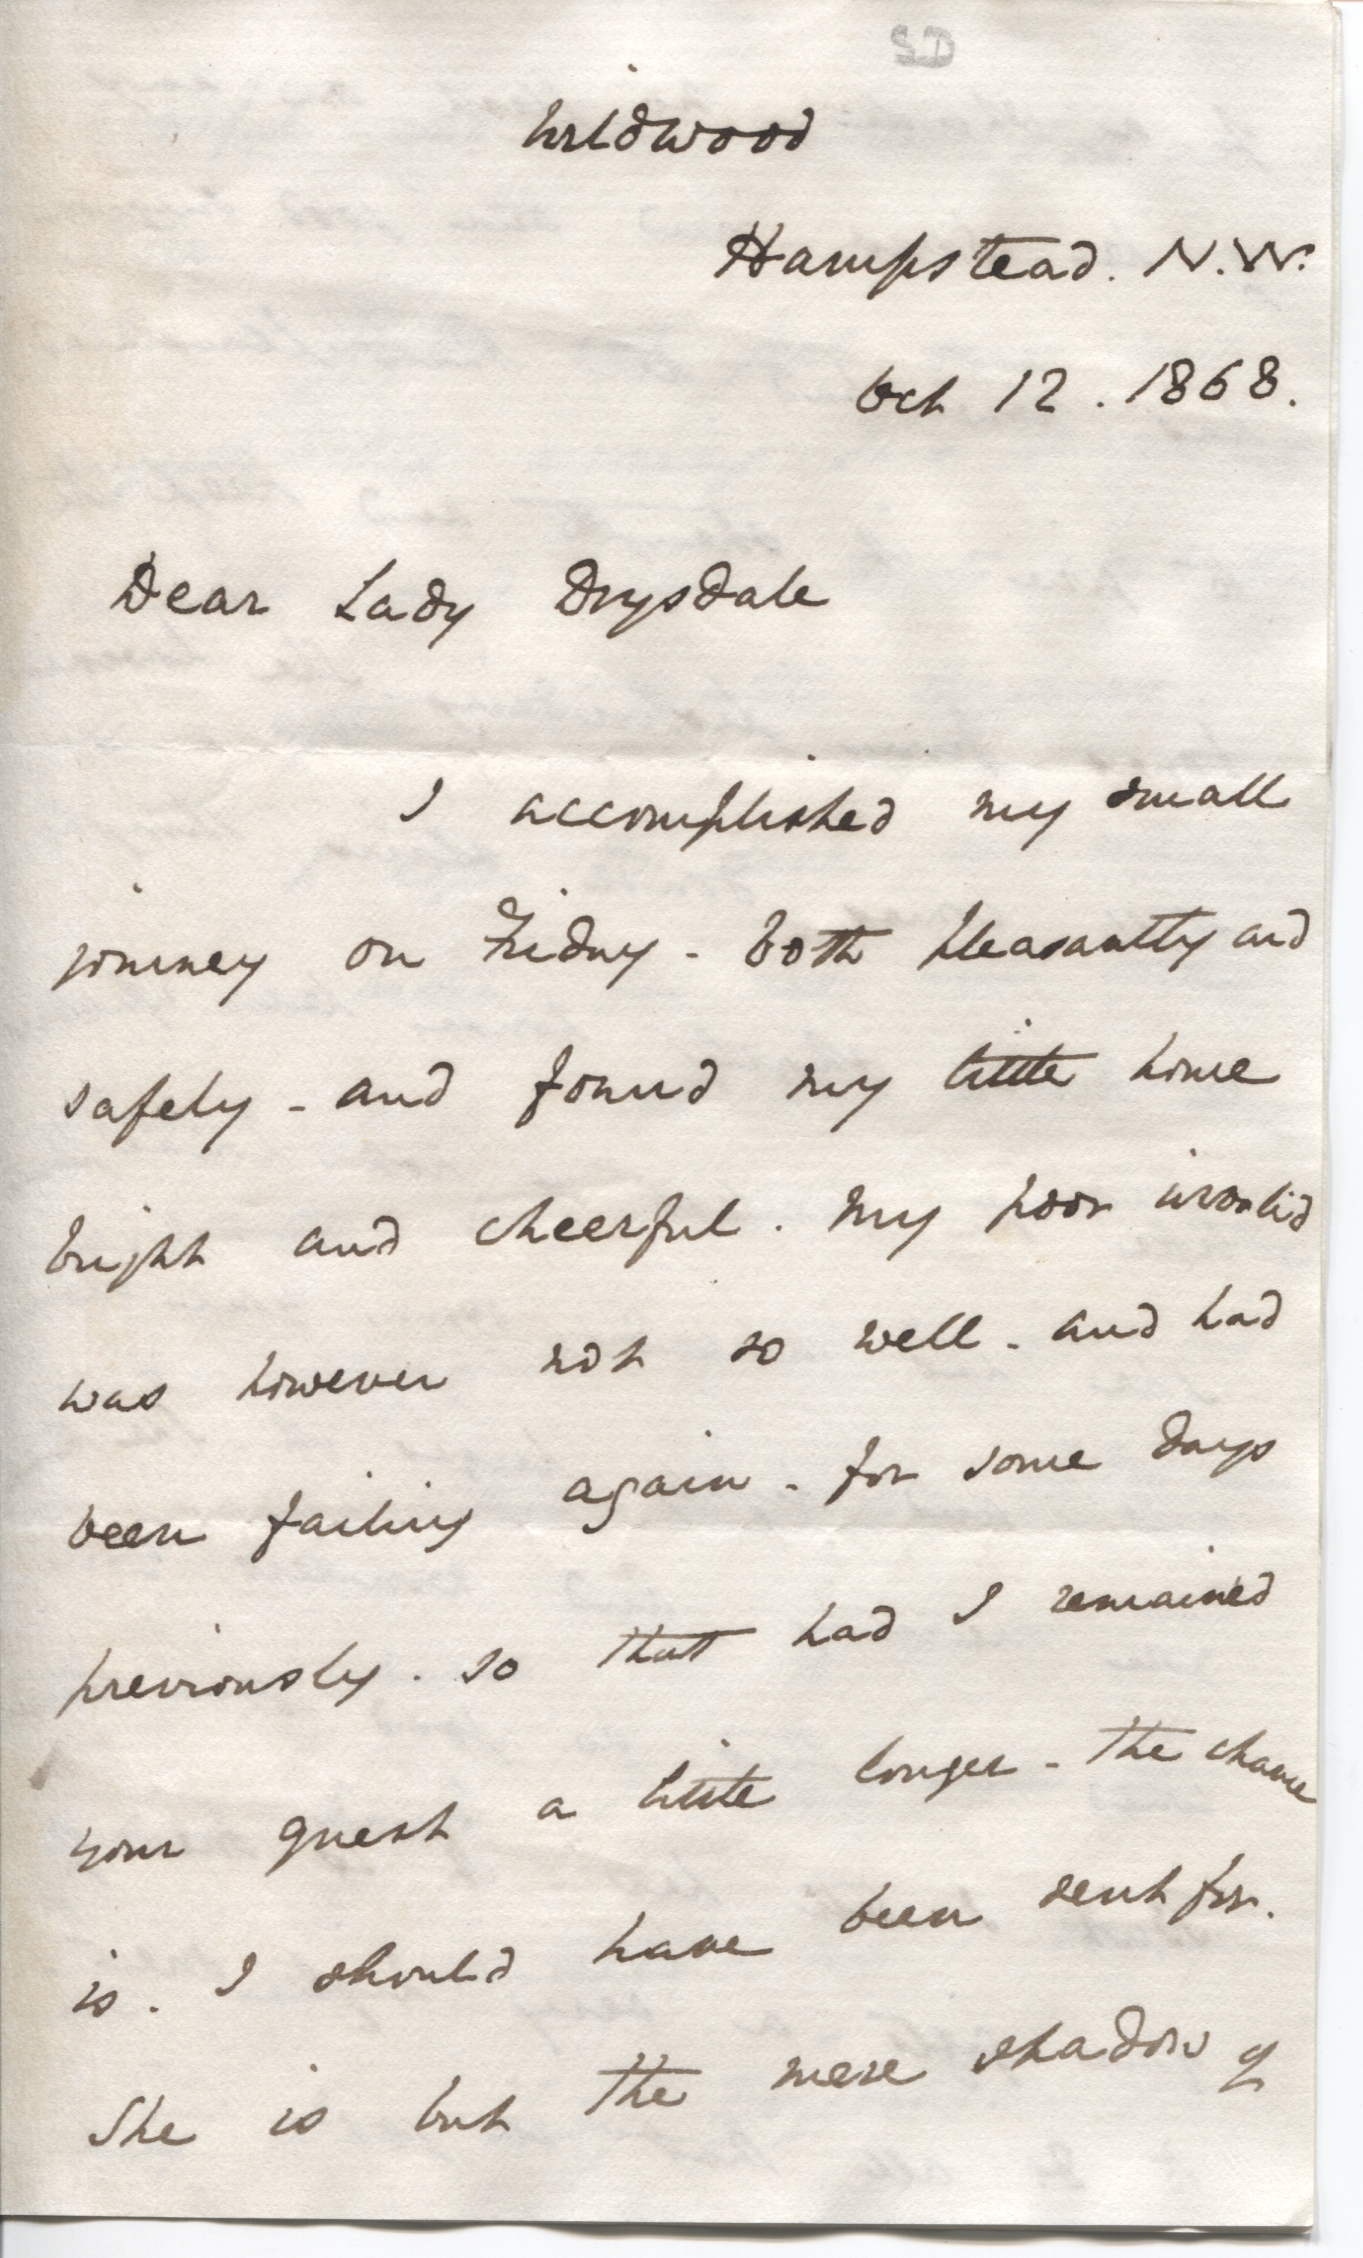 Wildwood
Hampstead. N.W.
Oct 12. 1868.
Dear Lady Drysdale
I accomplished my small
journey on Friday - both pleasantly and
safely - and found my little home
bright and cheerful. My poor invalid
was however not so well - and had
been failing again - for some days
previously. so that had I remained
your guest a little longer - the chance
is. I should have been sent for.
She is but the mere shadow of